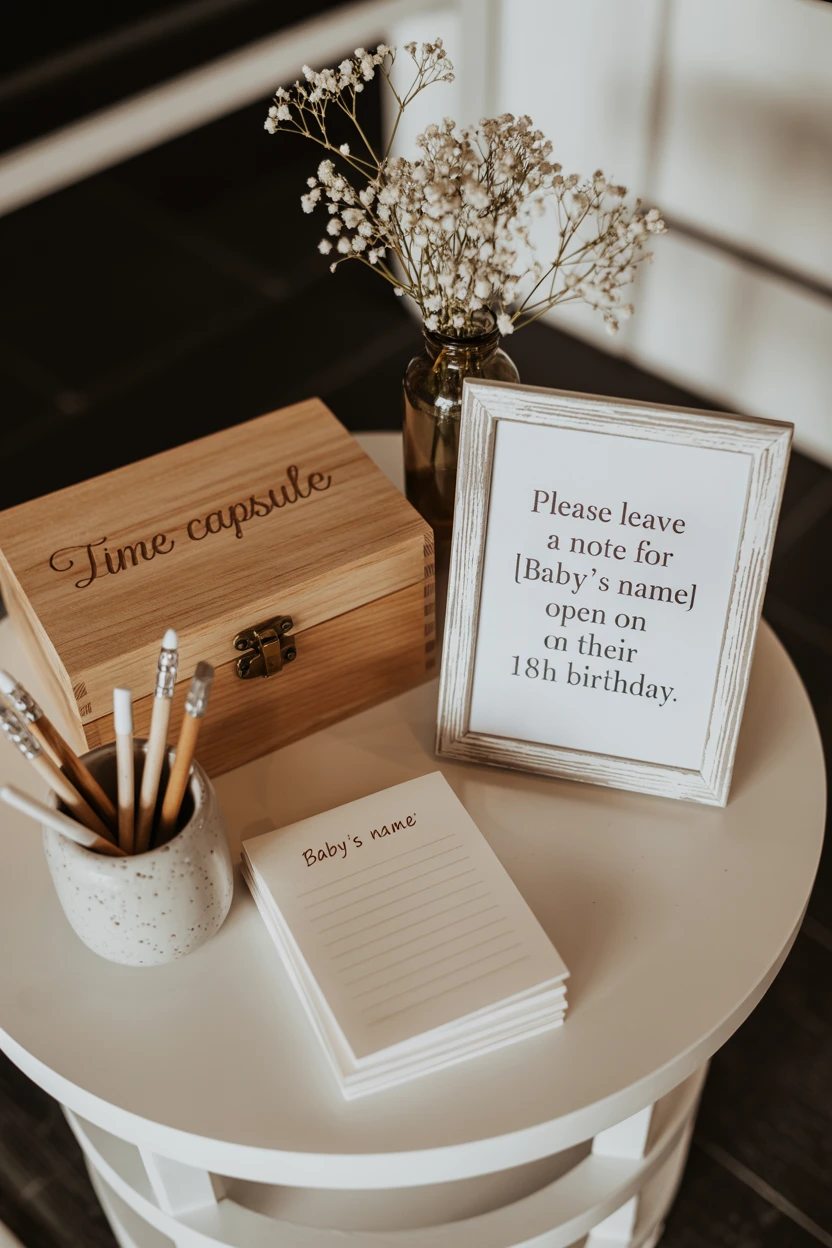 Time capsule
Please leave
a note for
[Baby's name]
open on
on their
18h birthday.
Baby's name